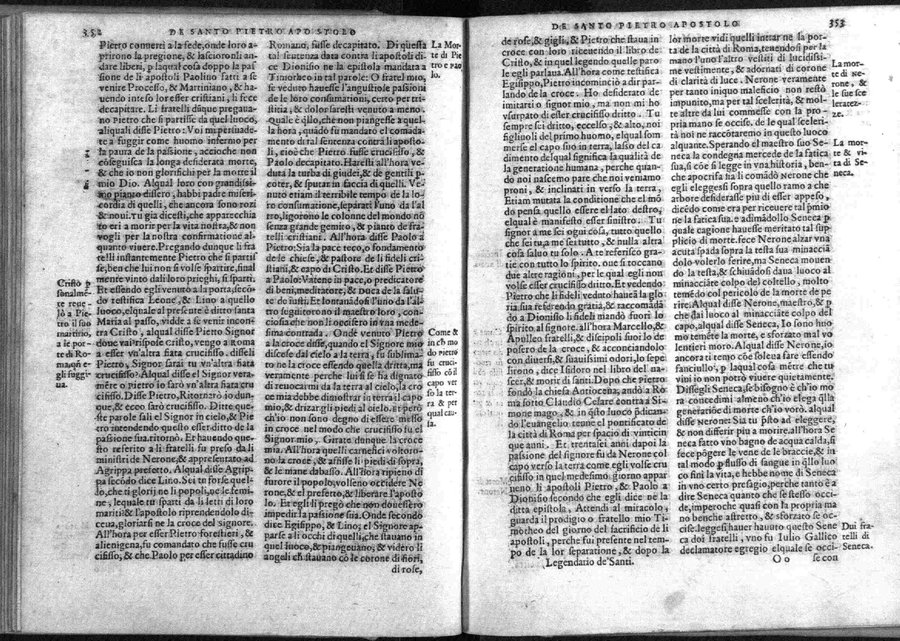 352
DE SANTO PIETRO APOSTOLO
Pietro conuertì a la fede, onde loro a-
prirono la pregione, & lasciorolli an-
dare liberi, p laqual cosa doppo la pas
sione de li apostoli Paolino fatti a se
venire Processo, & Martiniano, & ha-
uendo inteso lor esser cristiani, li fece
decapitare. Li fratelli disque pregaua-
no Pietro che si partisse da quel luoco,
aliquali disse Pietro: Voi mi persuade-
te a fuggir come huomo infermo per
la paura de la passione, acciochè non
cõseguisca la longa desiderata morte,
& che io non glorifichi per la morte il
mio Dio. Alqual loro con grandissi-
mo pianto dissero, habbi padre miseri-
cordia di quelli, che ancora sono rozi
& noui. Tu gia dicesti, che apparecchia
to eri a morir per la vita nostra, & non
vogli per la nostra confirmatione al-
quanto viuere. Pregando dunque li fra
telli instantemente Pietro che si partis
se, ben che lui non si volse partire, final
mente vinto dai loro prieghi, si partì.
Et essendo egli venuto a la porta, secõ-
do testifica Leone, & Lino a quello
luoco, elquale al presente è ditto santa
Maria al passo, vidde a se venir incon-
tra Cristo, alqual disse Pietro Signor
doue vai rispose Cristo, vengo a Roma
a esser vn'altra fiata crucifisso. disseli
Pietro, Signor sarai tu vn'altra fiata
crucifisso? Alqual disse el Signor vera-
mẽte o Pietro io sarò vn'altra fiata cru
cifisso. Disse Pietro, Ritornerò io dun-
que, & ecco sarò crucifisso. Ditte que-
ste parole salì el Signor in cielo, & Pie
tro intendendo questo esser ditto de la
passione sua, ritornò. Et hauendo que-
sto referito a li fratelli fu preso da li
ministri de Nerone, & appresentato ad
Agrippa prefetto. Alqual disse Agrip-
pa secõdo dice Lino. Sei tu forse quel-
lo, che ti glorij ne li popoli, ne le femi-
ne, lequale tu sparti da li letti di loro
mariti? & l'apostolo riprendendolo di-
ceua, gloriarsi ne la croce del signore.
All'hora per esser Pietro forestieri, &
alienigena, fu comandato che fusse cru
cifisso, & che Paolo per esser cittadino
Cristo p
sonalmẽ-
te reue-
lò a Pie-
tro il suo
martirio,
a le por-
te di Ro-
ma, qñ e-
gli fuggi-
ua.
Romano, fusse decapitato. Di questa
tal sentenza data contra li apostoli di-
ce Dionisio ne la epistola mandata a
Timotheo in tal parole: O fratel mio,
se veduto hauesse l'angustiose passioni
de le loro consumationi, certo per tri-
stitia, & dolor saresti venuto a meno.
Quale è q̃llo, che non piangesse a quel-
la hora, quãdo fu mandato el comãda-
mento di tal sentenza contra li aposto-
li, cioè che Pietro fusse crucifisso, &
Paolo decapitato. Haresti all'hora ve-
duta la turba di giudei, & de gentili p-
coter, & sputar in faccia di quelli. Ve-
nuto etiam il terribile tempo de la lo-
ro consumatione, separati l'uno da l'al
tro, ligorono le colonne del mondo nõ
senza grande gemito, & pianto de fra-
telli cristiani. All'hora disse Paolo a
Pietro: Sia la pace teco, o fondamento
de le chiese, & pastore de li fideli cri-
stiani, & capo di Cristo. Et disse Pietro
a Paolo: Vatene in pace, o predicatore
di beni, meditatore, & duca de la salu-
te de iusti. Et lontanãdosi l'uno da l'al-
tro seguitorono il maestro loro, con-
ciosia che non li occisero in vna mede-
sima contrada. Onde venuto Pietro
a la croce disse, quando el Signore mio
discese dal cielo a la terra, fu sublima-
to ne la croce essendo quella dritta, ma
veramente perche lui se si ha dignato
di reuocarmi da la terra al cielo, la cro
ce mia debbe dimostrar in terra il capo
mio, & drizar gli piedi al cielo. et però
ch'io non sono degno di essere messo
in croce nel modo che crucifisso fu, el
Signor mio. Girate dunque la croce
mia. All'hora quelli carnefici voltoro-
no la croce, & affisse li piedi di sopra,
& le mane dabasso. All'hora impieno di
furore il popolo, volseno occidere Ne
rone, & el prefetto, & liberare l'aposto
lo. Et egli li pregò che non douessero
impedir la passione sua. Onde secondo
dice Egisippo, & Lino; el Signore ap-
parse a li occhi di quelli, che stauano in
quel luoco, & piangeuano; & videro li
angeli ch stauano cõ le corone di fiori,
di rose,
La Mor-
te di Pie
tro e Pao
lo.
Come &
in ch mo
do pietro
fu cruci-
fisso cõ il
capo ver
so la ter-
ra & per
qual cau-
sa.
353
DE SANTO PIETRO APOSTOLO
de rose, & gigli, & Pietro che staua in
croce con loro riceuendo il libro de
Cristo, & in quel legendo quelle paro-
le egli parlaua. All'hora come testifica
Egisippo, Pietro incominciò a dir par-
lando de la croce. Ho desiderato de
imitarti o signor mio, ma non mi ho
vsurpato di esser crucifisso dritto. Tu
sempre sei dritto, eccelso, & alto, noi
figliuoli del primo huomo, elqual som-
merse el capo suo in terra, lasso del ca
dimento del qual significa la qualità de
la generatione humana, perche quan-
do noi nascemo pare che noi veniamo
proni, & inclinati in verso la terra,
Etiam mutata la conditione che el mõ
do pensa quello essere el lato destro,
elqual è manifesto esser sinistro. Tu
signor a me sei ogni cosa, tutto quello
che sei tu, a me sei tutto, & nulla altra
cosa saluo tu solo. A te referisco gra-
tie con tutto lo spirito. oue si toccano
due altre ragioni, per le qual egli non
volse esser crucifisso dritto. Et vedendo
Pietro che li fideli veduto hauea la glo
ria sua referendo gratia, & racomadã
do a Dionisio li fideli mandò fuori lo
spirito al signore. all'hora Marcello, &
Apulleo fratelli, & discipoli suoi lo de
posero de la croce, & acconciandolo
con diuersi, & suauissimi odori, lo sepe
lirono, dice Isidoro nel libro del na-
scer, & morir di santi. Dapo che Pietro
fondò la chiesa Antiocena, andò a Ro
ma sotto Claudio Cesare contra a Si-
mone mago, & in q̃sto luoco p̃dican-
do l'euangelio tenne el pontificato de
la città di Roma per spacio di vinticin
que anni. Et trentasei anni dapoi la
passione del signore fu da Nerone col
capo verso la terra come egli volse cru
cifisso in quel medesimo giorno appar
ueno li apostoli Pietro, & Paolo a
Dionisio secondo che egli dice ne la
ditta epistola, Attendi al miracolo,
guarda il prodigio o fratello mio Ti-
motheo del giorno del sacrificio de li
apostoli, perche fui presente nel tem-
po de la lor separatione, & dopo la
Legendario de' Santi.
lor morte vidi quelli intrar ne la por-
ta de la città di Roma, tenendosi per la
mano l'uno l'altro vestiti di lucidissi-
me vestimente, & adornati di corone
di clarità de luce. Nerone veramente
per tanto iniquo maleficio non restò
impunito, ma per tal scelerità, & mol-
te altre da lui commesse con la pro-
pria mano se occise. de le qual sceleri-
tà noi ne raccõtaremo in questo luoco
alquante. Sperando el maestro suo Se-
neca la condegna mercede de la fatica
sua, si cõe si legge in vna historia, ben-
che apocrifa fu li comãdò Nerone che
egli eleggessi sopra quello ramo a che
arbore desiderasse piu di esser appeso,
dicẽdo come era per riceuere tal pmio
ne la fatica sua. e adimãdolli Seneca p
quale cagione hauesse meritato tal sup
plicio di morte. fece Nerone alzar vna
acuta spada sopra la testa sua minacciã
dolo volerlo ferire, ma Seneca mouen
do la testa, & schiuãdosi daua luoco al
minacciãte colpo del coltello, molto
temẽdo col pericolo de la morte de pe
rire. Alqual disse Nerone, maestro, & p
che dai luoco al minacciãte colpo del
capo, alqual disse Seneca, Io sono huo
mo temẽte la morte, e sforzato mal vo
lentieri moro. Alqual disse Nerone, io
ancora ti temo cõe solea fare essendo
fanciullo, p laqual cosa mẽtre che tu
viui io non potrò viuere quietamente.
Dissegli Seneca, se bisogno è ch'io mo
ra concedimi almeno ch'io elega q̃lla
generatiõe di morte ch'io vorò. alqual
disse Nerone: Sia tu psto al eleggere,
& non disserir piu a morire, all'hora Se
neca fatto vno bagno de acqua calda, si
fece põgere le vene de le braccie, & in
tal modo p̃ flusso di sangue in q̃llo luo
co finì la vita, e hebbe nome di Seneca
in vno certo presagio, perche tanto è a
dire Seneca quanto che se stesso occi-
de, imperoche quasi con la propria ma
no benche astretto, & sforzato se oc-
cise. leggesi, hauer hauuto questo Sene
ca doi fratelli, vno fu Iulio Gallico
declamatore egregio elquale se occi-
O o
se con
La mor-
te di Ne-
rone, &
le sue sce
leratez-
ze.
La mor-
te & vi-
ta di Se-
neca.
Dui fra-
telli di
Seneca.